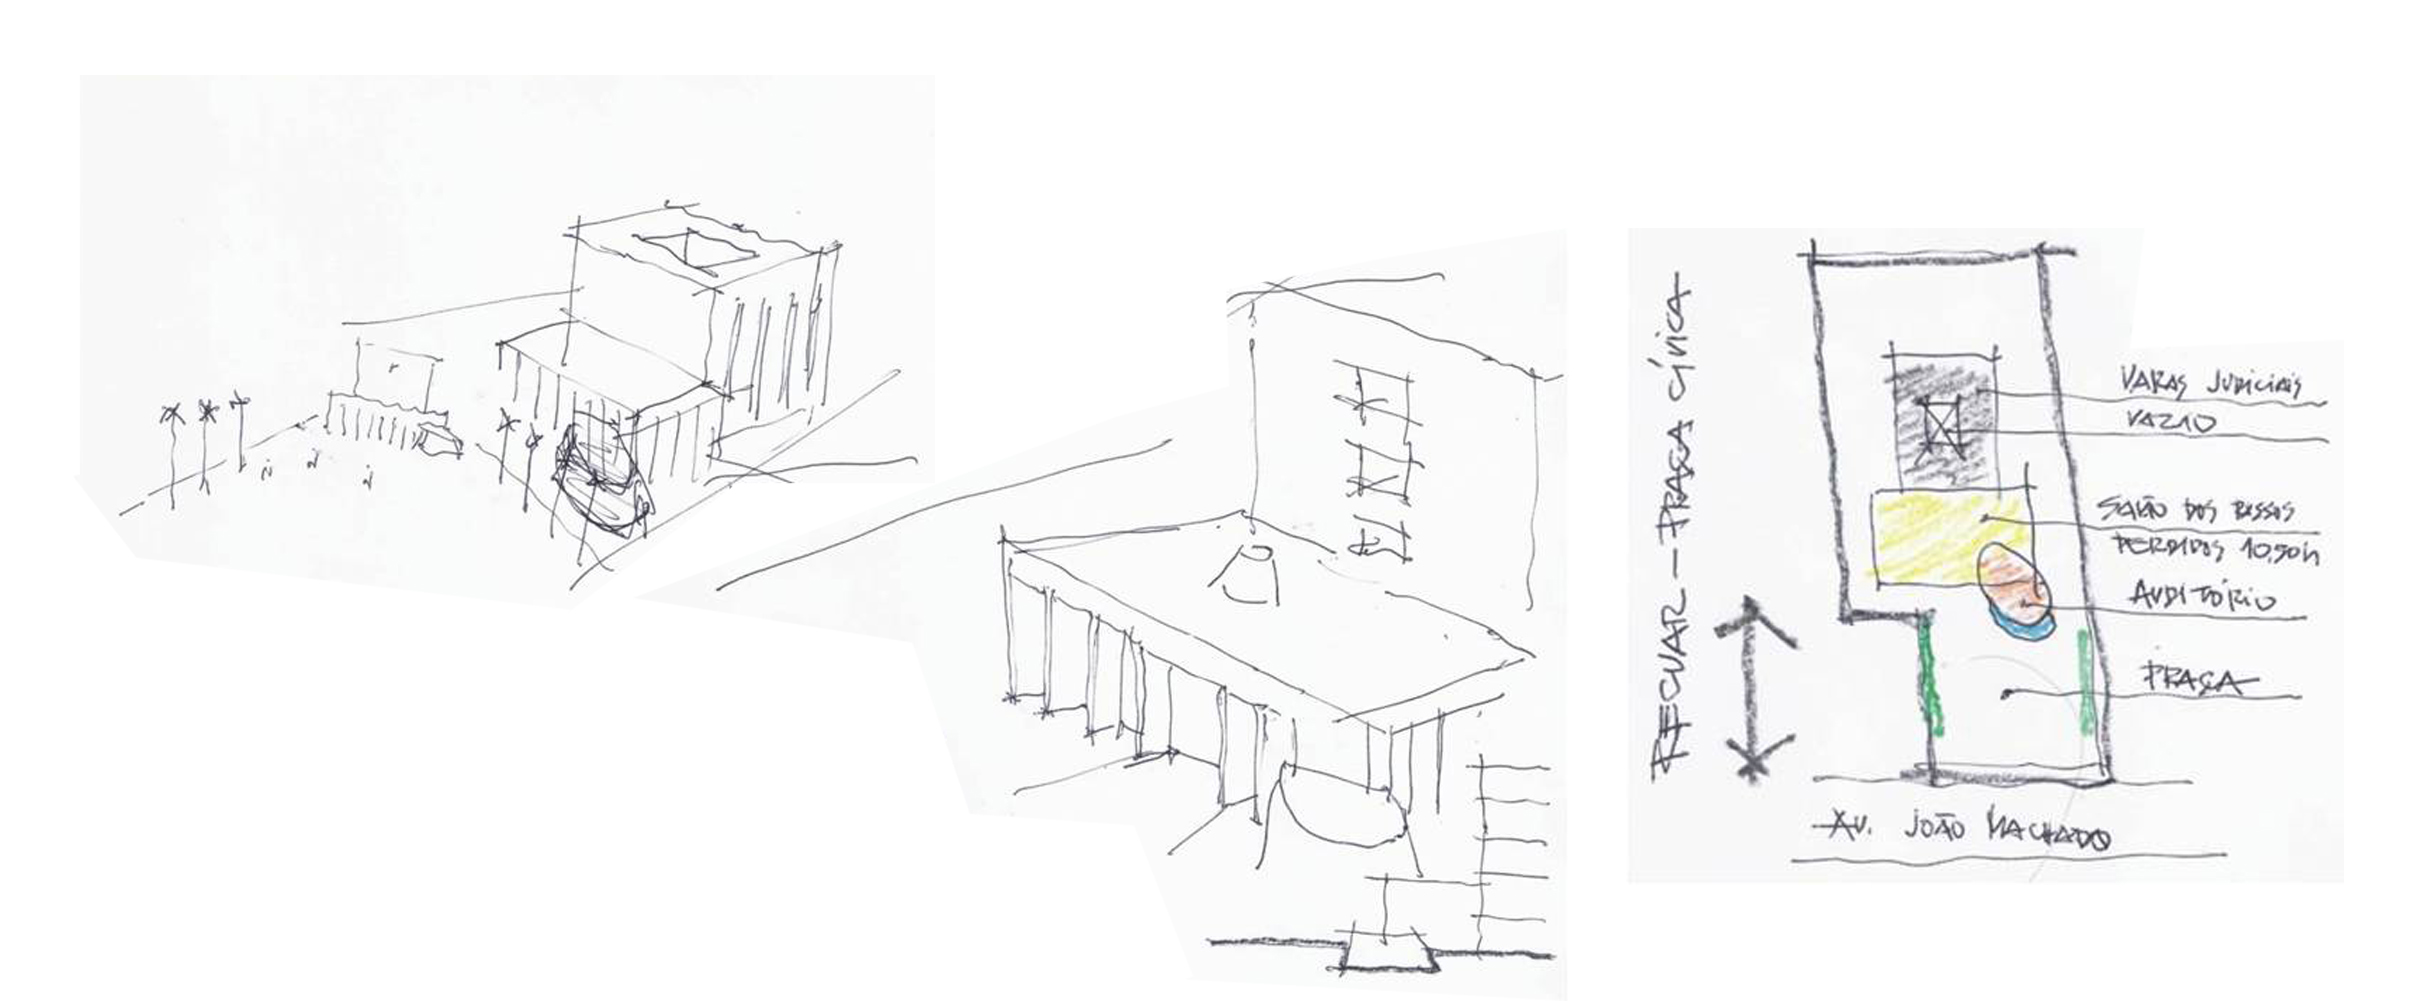 RECUAR - PRAÇA CÍVICA
VARAS JUDICIAIS
VAZIO
SALÃO DOS PASSOS
PERDIDOS 10,50h
AUDITÓRIO
PRAÇA
AV. JOÃO MACHADO